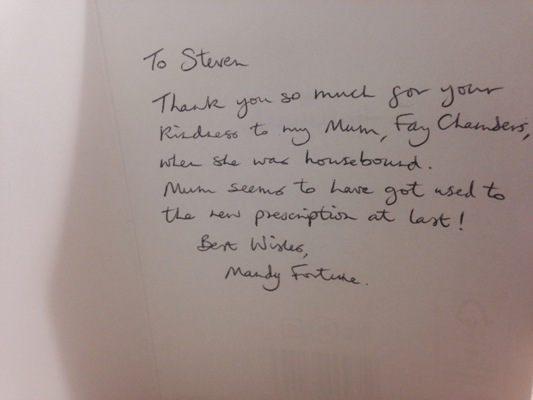 To Steven
Thank you so much for your
kindness to my Mum, Fay Chambers,
when she was housebound.
Mum seems to have got used to
the new prescription at last!
Best Wishes,
Mandy Fortune.